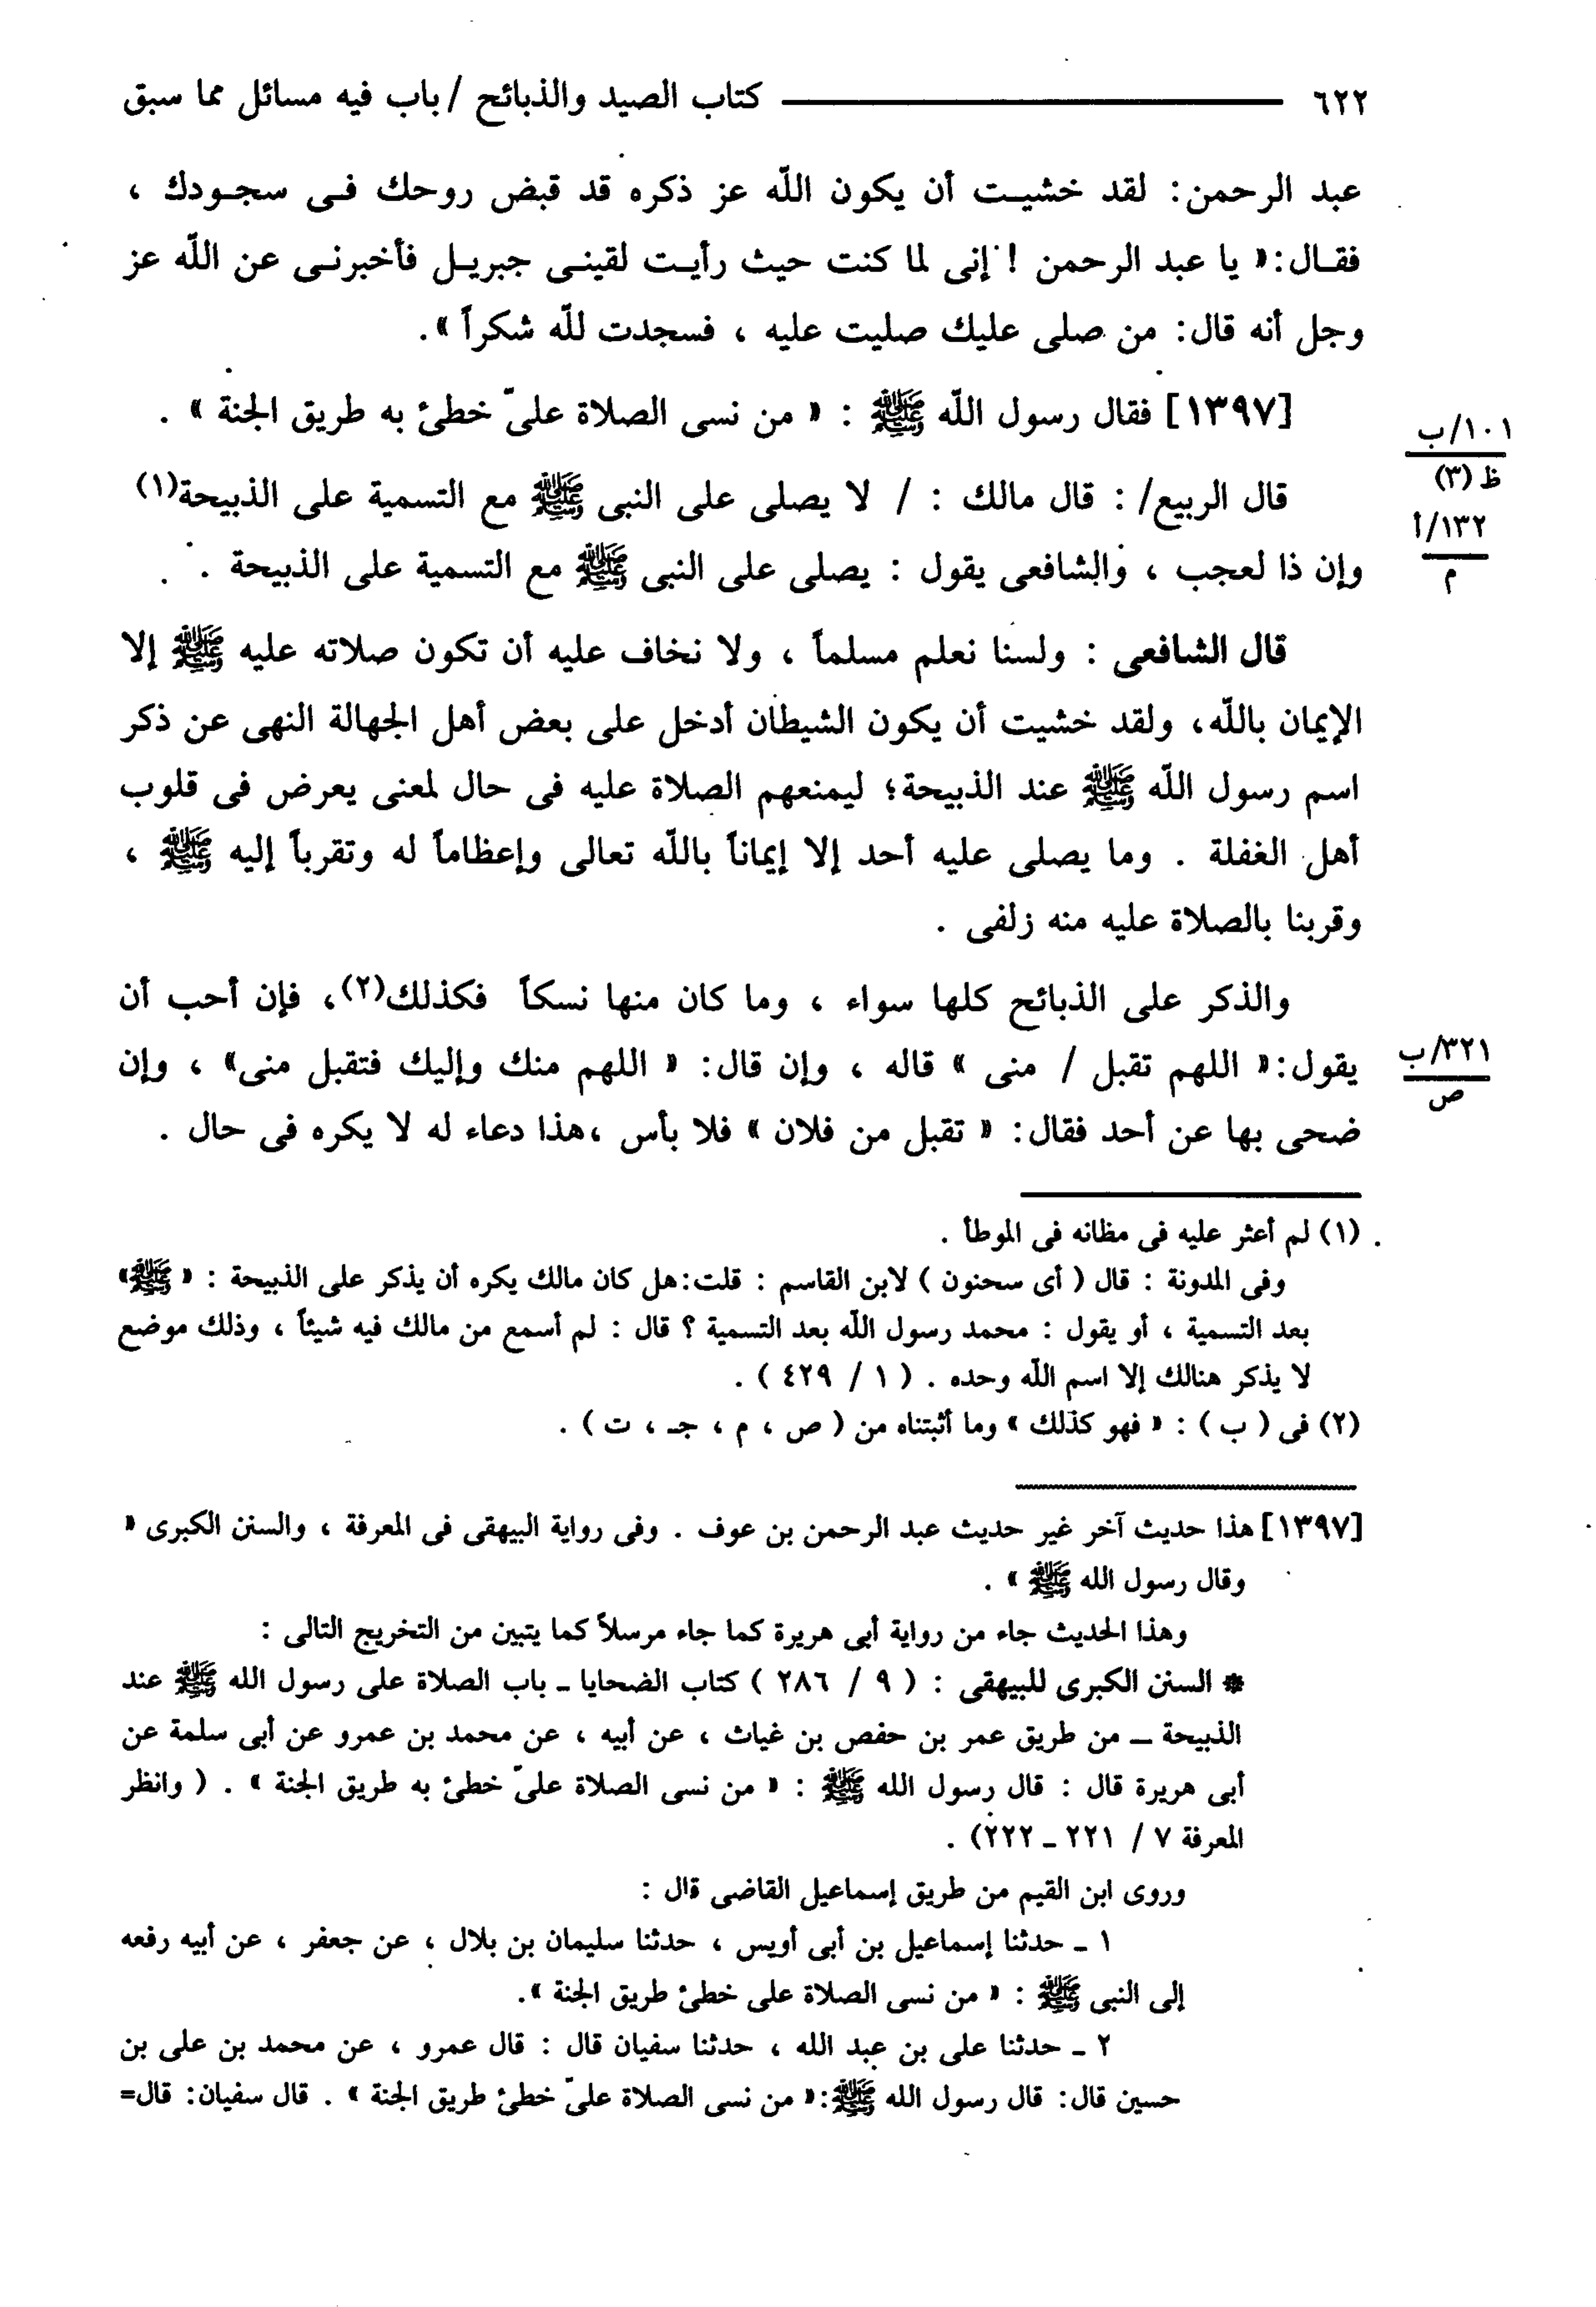 ٦٢٢ ـــــــ كتاب الصيد والذبائح / باب فيه مسائل مما سبق
عبد الرحمن: لقد خشيـت أن يكون اللّه عز ذكره قد قبض روحك فـى سجـودك ،
فقـال:« يا عبد الرحمن ! إنى لما كنت حيث رأيـت لقينـى جبريـل فأخبرنـى عن اللّه عز
وجل أنه قال: من صلى عليك صليت عليه ، فسجدت للّه شكراً ».
[١٣٩٧] فقال رسول اللّه ﷺ : « من نسى الصلاة علىّ خطئ به طريق الجنة » .
١٠١/ب
ظ (٣)
قال الربيع/ : قال مالك : / لا يصلى على النبى ﷺ مع التسمية على الذبيحة(١)
١٣٢/أ
م
وإن ذا لعجب ، والشافعى يقول : يصلى على النبى ﷺ مع التسمية على الذبيحة .
قال الشافعى : ولسنا نعلم مسلماً ، ولا نخاف عليه أن تكون صلاته عليه ﷺ إلا
الإيمان باللّه، ولقد خشيت أن يكون الشيطان أدخل على بعض أهل الجهالة النهى عن ذكر
اسم رسول اللّه ﷺ عند الذبيحة؛ ليمنعهم الصلاة عليه فى حال لمعنى يعرض فى قلوب
أهل الغفلة . وما يصلى عليه أحد إلا إيماناً باللّه تعالى وإعظاماً له وتقرباً إليه ﷺ ،
وقربنا بالصلاة عليه منه زلفى .
والذكر على الذبائح كلها سواء ، وما كان منها نسكاً فكذلك(٢)، فإن أحب أن
يقول:« اللهم تقبل / منى » قاله ، وإن قال: « اللهم منك وإليك فتقبل منى» ، وإن
٣٢١/ب
ص
ضحى بها عن أحد فقال: « تقبل من فلان » فلا بأس ،هذا دعاء له لا يكره فى حال .
(١) لم أعثر عليه فى مظانه فى الموطأ .
وفى المدونة : قال ( أى سحنون ) لابن القاسم : قلت:هل كان مالك يكره أن يذكر على الذبيحة : « ﷺ»
بعد التسمية ، أو يقول : محمد رسول اللّه بعد التسمية ؟ قال : لم أسمع من مالك فيه شيئاً ، وذلك موضع
لا يذكر هنالك إلا اسم اللّه وحده . ( ١ / ٤٢٩ ) .
(٢) فى ( ب ) : « فهو كذلك » وما أثبتناه من ( ص ، م ، جـ ، ت ) .
[١٣٩٧] هذا حديث آخر غير حديث عبد الرحمن بن عوف . وفى رواية البيهقى فى المعرفة ، والسنن الكبرى «
وقال رسول الله ﷺ » .
وهذا الحديث جاء من رواية أبى هريرة كما جاء مرسلاً كما يتبين من التخريج التالى :
* السنن الكبرى للبيهقى : ( ٩ / ٢٨٦ ) كتاب الضحايا ـ باب الصلاة على رسول الله ﷺ عند
الذبيحة ـ من طريق عمر بن حفص بن غياث ، عن أبيه ، عن محمد بن عمرو عن أبى سلمة عن
أبى هريرة قال : قال رسول الله ﷺ : « من نسى الصلاة علىّ خطئ به طريق الجنة » . ( وانظر
المعرفة ٧ / ٢٢١ ـ ٢٢٢) .
وروى ابن القيم من طريق إسماعيل القاضى قال :
١ ـ حدثنا إسماعيل بن أبى أويس ، حدثنا سليمان بن بلال ، عن جعفر ، عن أبيه رفعه
إلى النبى ﷺ : « من نسى الصلاة على خطئ طريق الجنة ».
٢ ـ حدثنا على بن عبد الله ، حدثنا سفيان قال : قال عمرو ، عن محمد بن على بن
حسين قال: قال رسول الله ﷺ:« من نسى الصلاة علىّ خطئ طريق الجنة » . قال سفيان: قال=